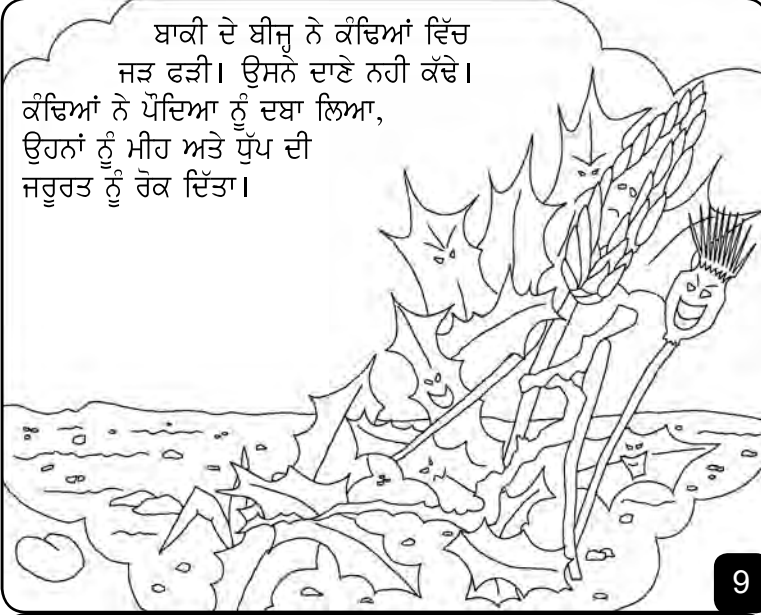 ਬਾਕੀ ਦੇ ਬੀਜ੍ਹ ਨੇ ਕੰਢਿਆਂ ਵਿੱਚ
ਜੜ ਫੜੀ। ਉਸਨੇ ਦਾਣੇ ਨਹੀ ਕੱਢੇ।
ਕੰਢਿਆਂ ਨੇ ਪੌਦਿਆ ਨੂੰ ਦਬਾ ਲਿਆ,
ਉਹਨਾਂ ਨੂੰ ਮੀਹ ਅਤੇ ਧੁੱਪ ਦੀ
ਜਰੂਰਤ ਨੂੰ ਰੋਕ ਦਿੱਤਾ।
9